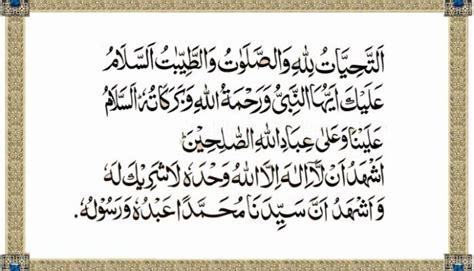 اَلتَّحِيَّاتُ لِلّٰهِ وَالصَّلَوٰتُ وَالطَّيِّبٰتُ اَلسَّلَامُ
عَلَيْكَ اَيُّهَا النَّبِيُّ وَرَحْمَةُ اللهِ وَبَرَكَاتُهُ اَلسَّلَامُ
عَلَيْنَا وَعَلٰى عِبَادِ اللهِ الصّٰلِحِيْنَ
اَشْهَدُ اَنْ لَّا اِلٰهَ اِلَّا اللهُ وَحْدَهُ لَا شَرِيْكَ لَهُ
وَاَشْهَدُ اَنَّ سَيِّدَنَا مُحَمَّدًا عَبْدُهُ وَرَسُوْلُهُ.